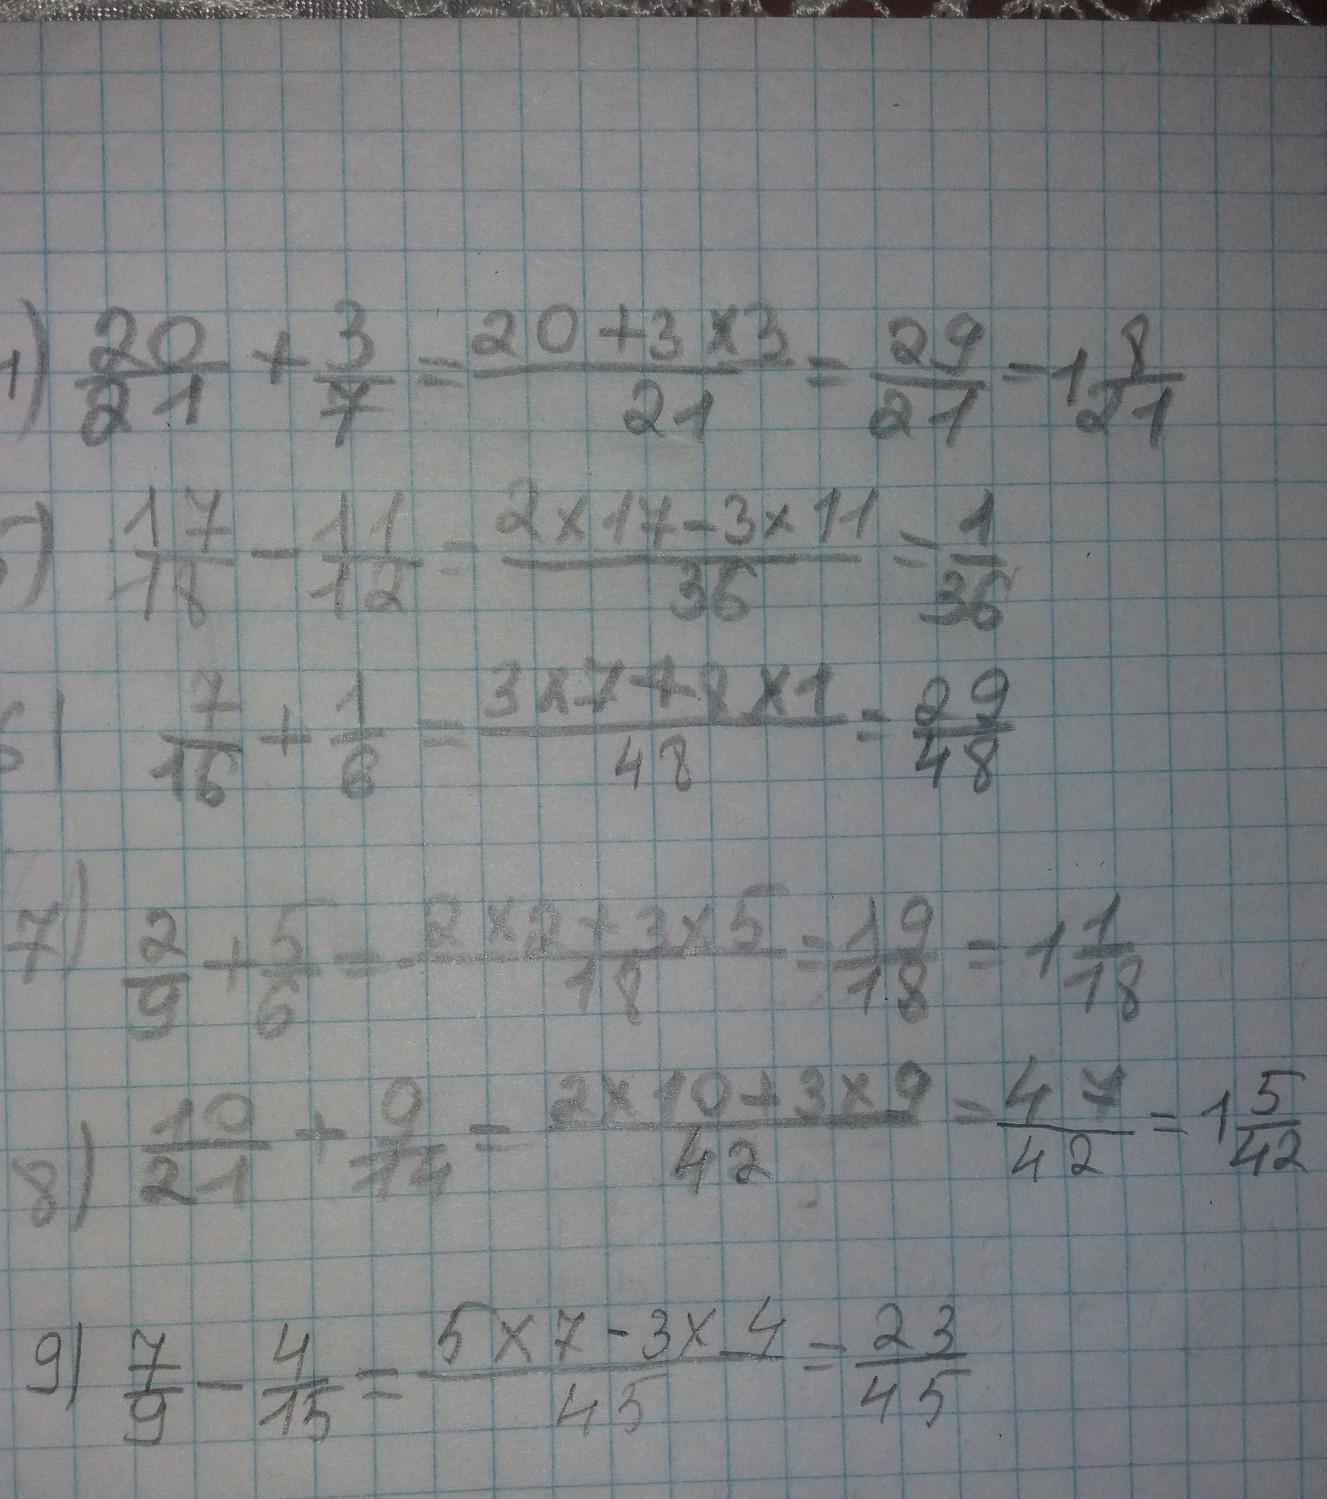 4) 20/21 + 3/7 = 20+3×3/21 = 29/21 = 1 8/21
5) 17/18 - 11/12 = 2×17-3×11/36 = 1/36
6) 7/16 + 1/6 = 3×7+8×1/48 = 29/48
7) 2/9 + 5/6 = 2×2+3×5/18 = 19/18 = 1 1/18
8) 10/21 + 9/14 = 2×10+3×9/42 = 47/42 = 1 5/42
9) 7/9 - 4/15 = 5×7-3×4/45 = 23/45